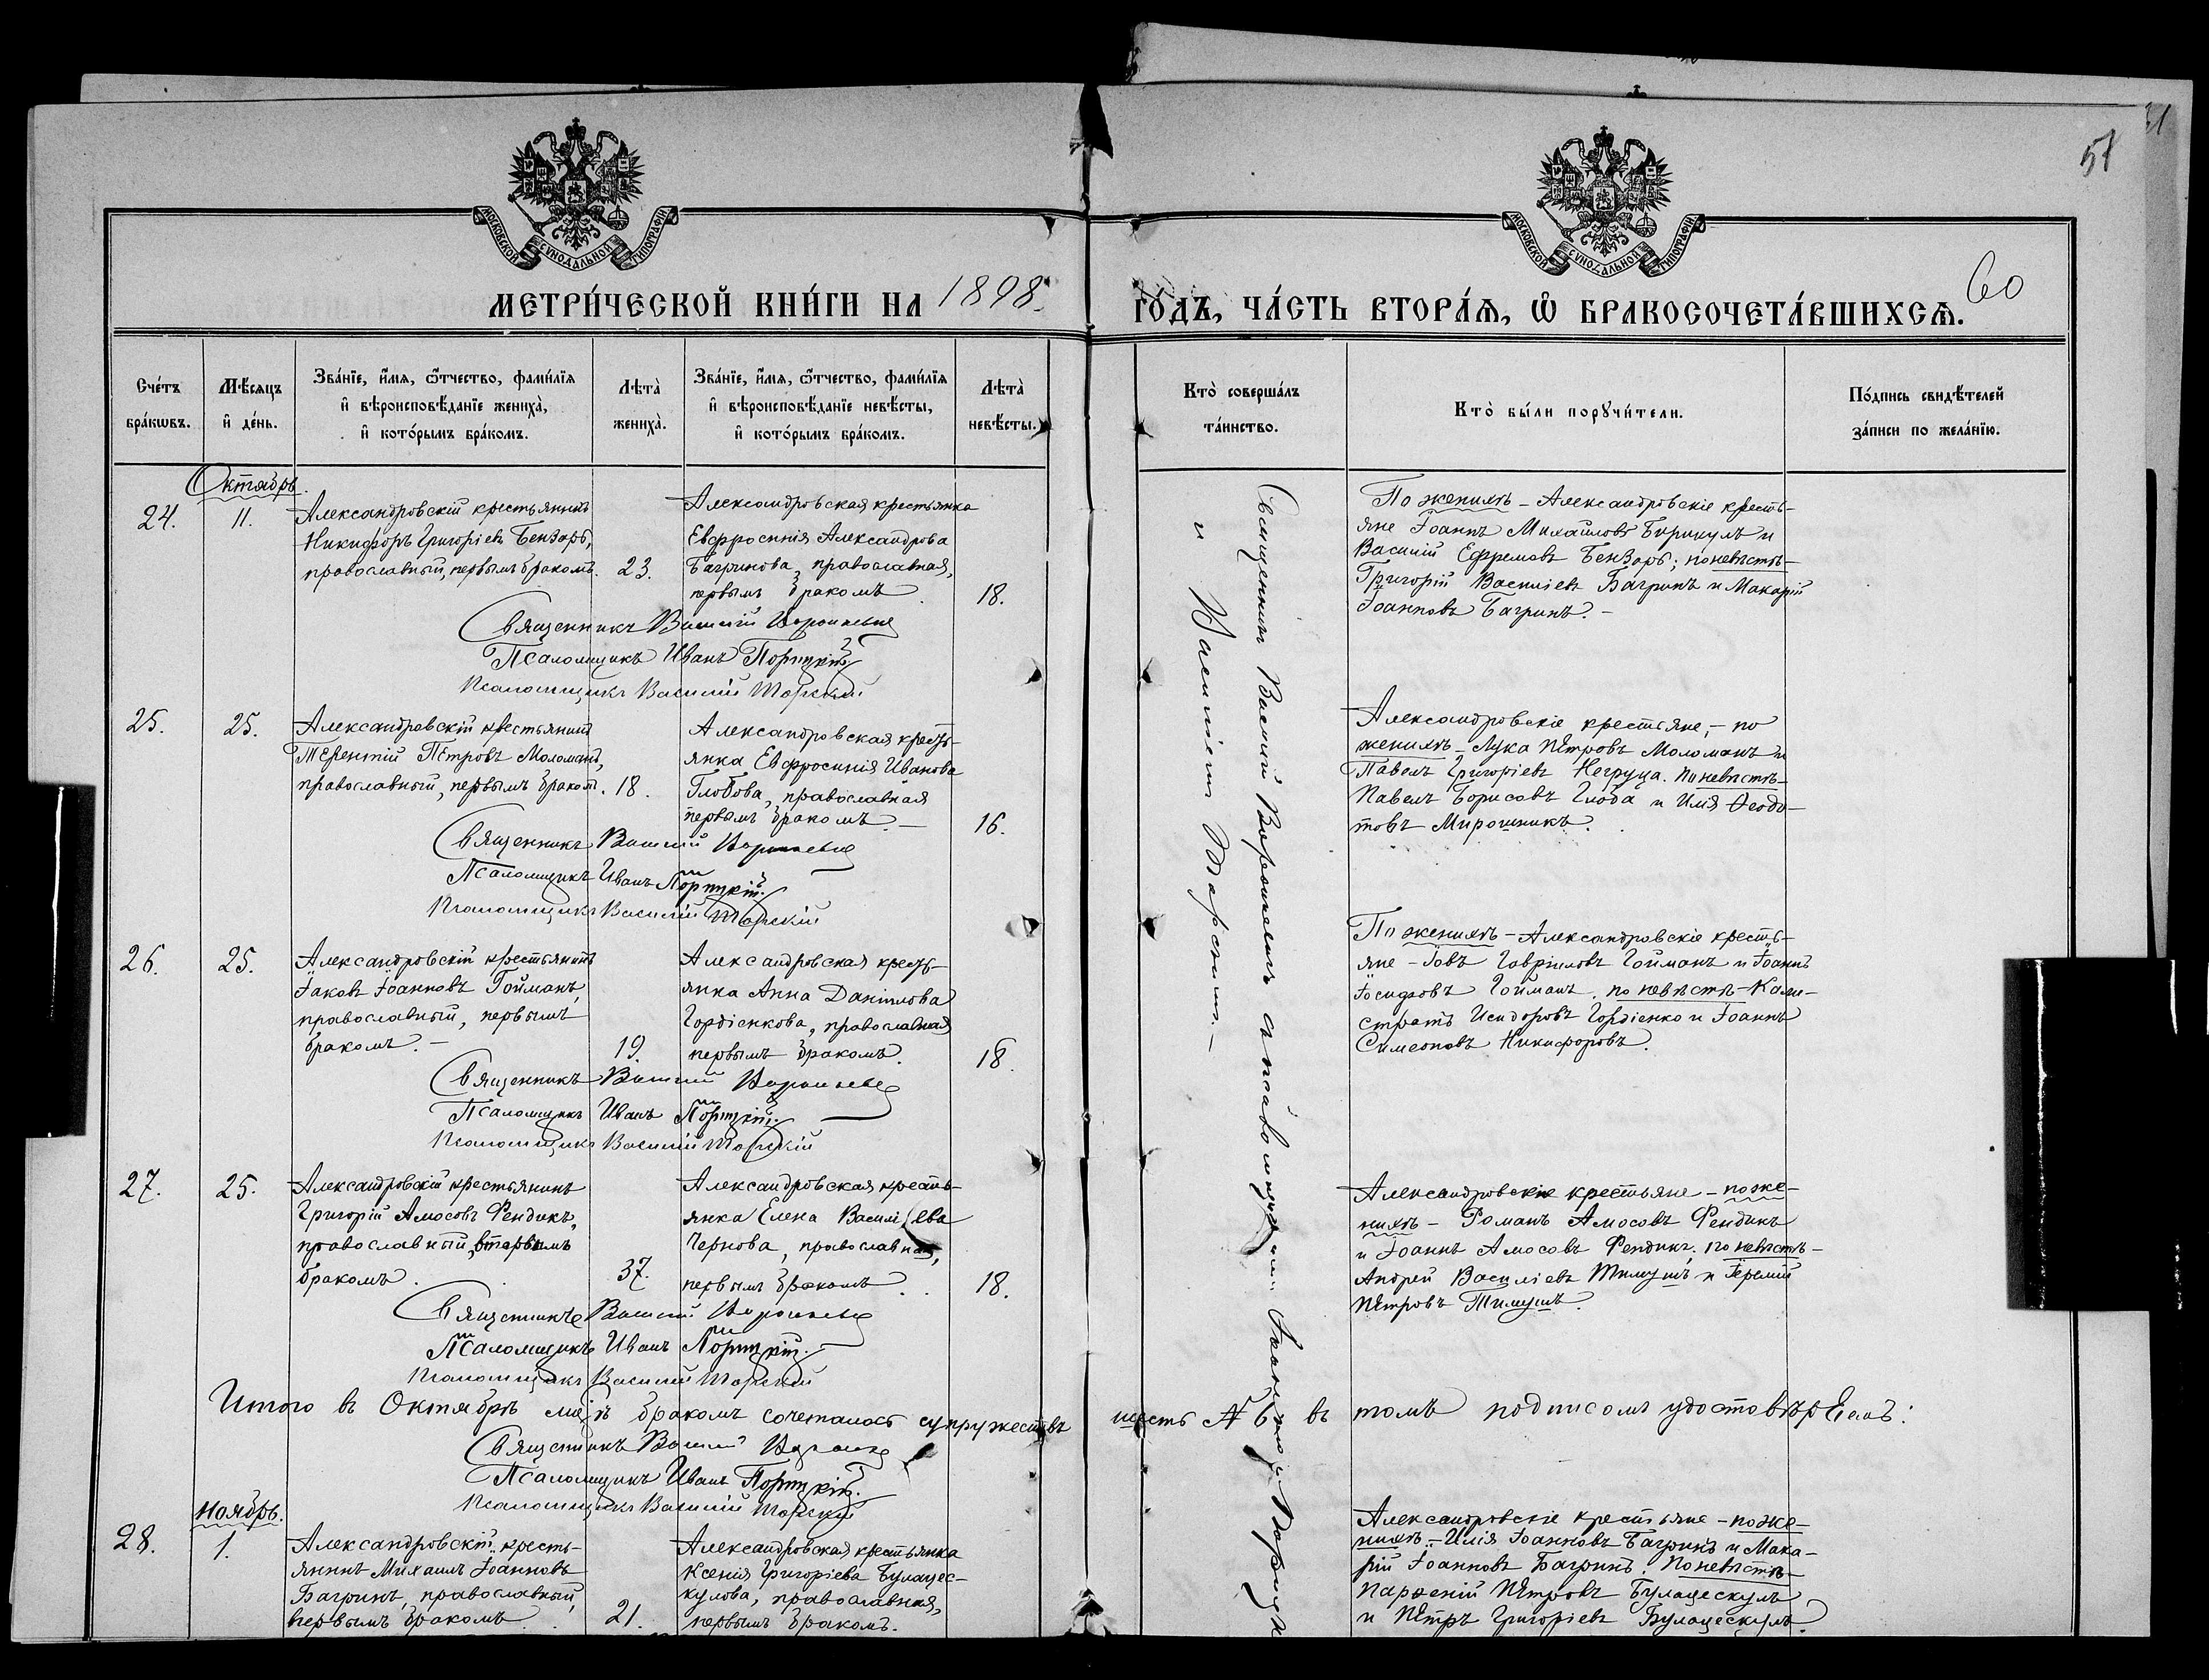 51
МОСКОВСКОЙ СѴНОДАЛЬНОЙ ТИПОГРАФІИ
МОСКОВСКОЙ СѴНОДАЛЬНОЙ ТИПОГРАФІИ
60
МЕТРИ́ЧЕСКОЙ КНИ́ГИ НА 1898.
ГО́ДЪ, ЧА́СТЬ ВТОРА́Я, Ѡ БРАКОСОЧЕТА́ВШИХСЯ.
Сче́тъ бра́кѡвъ.
Мѣ́сяцъ и де́нь.
Зва́нїе, и́мя, ѻ́тчество, фами́лїя и вѣроисповѣ́данїе жениха̀, и кото́рымъ бра́комъ.
Лѣта̀ жениха̀.
Зва́нїе, и́мя, ѻ́тчество, фами́лїя и вѣроисповѣ́данїе невѣ́сты, и кото́рымъ бра́комъ.
Лѣта̀ невѣ́сты.
Кто̀ соверша́лъ та́инство.
Кто̀ бы́ли порꙋчи́тели.
По́дпись свидѣ́телей за́писи по жела́нїю.
Октябрь.
24.
11.
Александровскій крестьянинъ
Никифоръ Григоріевъ Бензарь,
православный, первымъ бракомъ.
23.
Александровская крестьянка
Евфросинія Александрова
Багринова, православная,
первымъ бракомъ.
18.
По женихѣ – Александровскіе кресть-
яне Іоаннъ Михайловъ Бирикулъ и
Василій Ефремовъ Бензарь; по невѣстѣ –
Григорій Василіевъ Багринъ и Макарій
Іоанновъ Багринъ. –
Священникъ Василій
Псаломщикъ Иванъ Порицкій
Псаломщикъ Василій Торскій
25.
25.
Александровскій крестьянинъ
Терентій Петровъ Моломанъ,
православный, первымъ браком.
18.
Александровская кресть-
янка Евфросинія Иванова
Глобова, православная
первымъ бракомъ. –
16.
Александровскіе крестьяне, – по
женихѣ – Лука Петровъ Моломанъ и
Павелъ Григоріевъ Негруца. По невѣстѣ –
Павелъ Борисовъ Глоба и Илія Ѳеодо-
товъ Мирошникъ.
Священникъ Василій
Псаломщикъ Иванъ Порицкій.
Псаломщикъ Василій Торскій
26.
25.
Александровскій крестьянинъ
Іаковъ Іоанновъ Гойманъ,
православный, первымъ
бракомъ. –
19.
Александровская кресть-
янка Анна Даніилова
Гордіенкова, православная
первымъ бракомъ.
18.
По женихѣ – Александровскіе кресть-
яне – Іовъ Гавріиловъ Гойманъ и Іоаннъ
Іосифовъ Гойманъ. по невѣстѣ – Кали-
стратъ Исидоровъ Гордіенко и Іоаннъ
Симеоновъ Никифоровъ.
Священникъ Василій
Псаломщикъ Иванъ Порицкій.
Псаломщикъ Василій Торскій
27.
25.
Александровскій крестьянинъ
Григорій Амосовъ Фендикъ,
православный, вторымъ
бракомъ.
37.
Александровская кресть-
янка Елена Василіева
Чернова, православная,
первымъ бракомъ.
18.
Александровскіе крестьяне – по же-
нихѣ – Романъ Амосовъ Фендикъ
и Іоаннъ Амосовъ Фендикъ. По невѣстѣ –
Андрей Василіевъ Тимушъ и Іеремій
Петровъ Тимушъ.
Священникъ Василій
Псаломщикъ Иванъ Порицкій.
Псаломщикъ Василій Торскій
Итого въ Октябрѣ м-цѣ бракомъ сочеталось супружествъ шесть № 6 въ томъ подписомъ удостовѣряемъ:
Священникъ Василій
Псаломщикъ Иванъ Порицкій.
Псаломщикъ Василій Торскій
Ноябрь.
28.
1.
Александровскій кресть-
янинъ Михаилъ Іоанновъ
Багринъ, православный,
первымъ бракомъ.
21.
Александровская крестьянка
Ксенія Григоріева Булацес-
кулова, православная,
первымъ бракомъ.
Александровскіе крестьяне – по же-
нихѣ – Илія Іоанновъ Багринъ и Мака-
рій Іоанновъ Багринъ. По невѣстѣ –
Парѳеній Петровъ Булацескулъ
и Петръ Григоріевъ Булацескулъ.
Священникъ Василій съ псаломщиками Іоанномъ
и Василіемъ Торскимъ. –